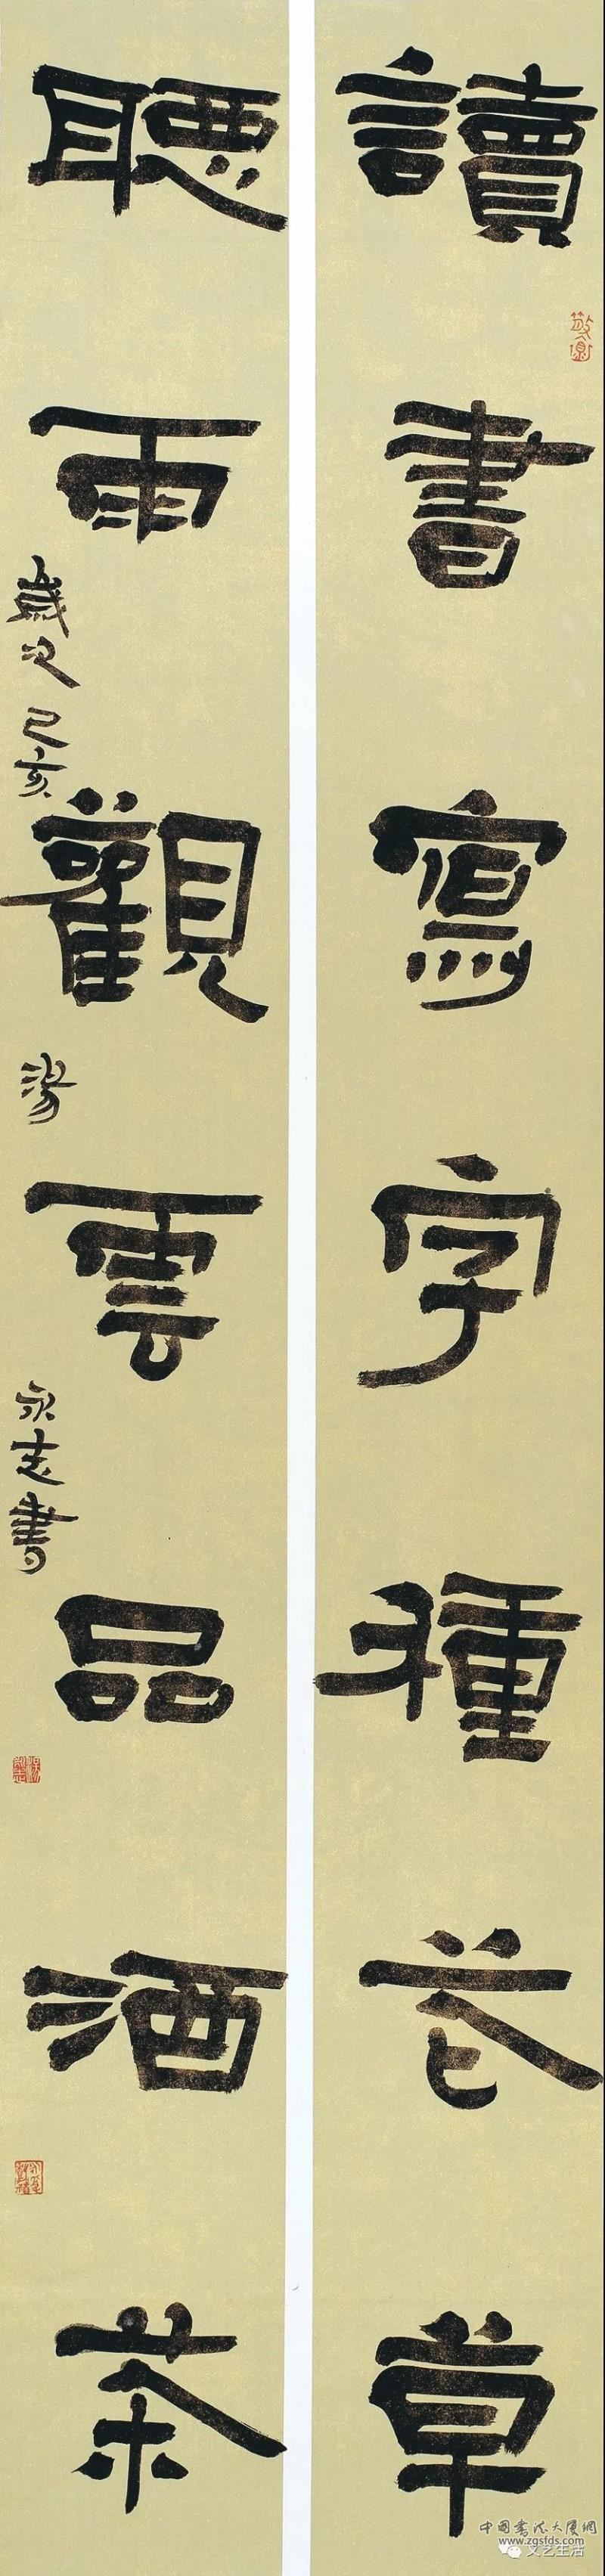 讀書寫字種花草
聽雨觀雲品酒茶
歲次己亥
湯
永志書
中國書法大廈網
www.zgsfds.com
文艺生活